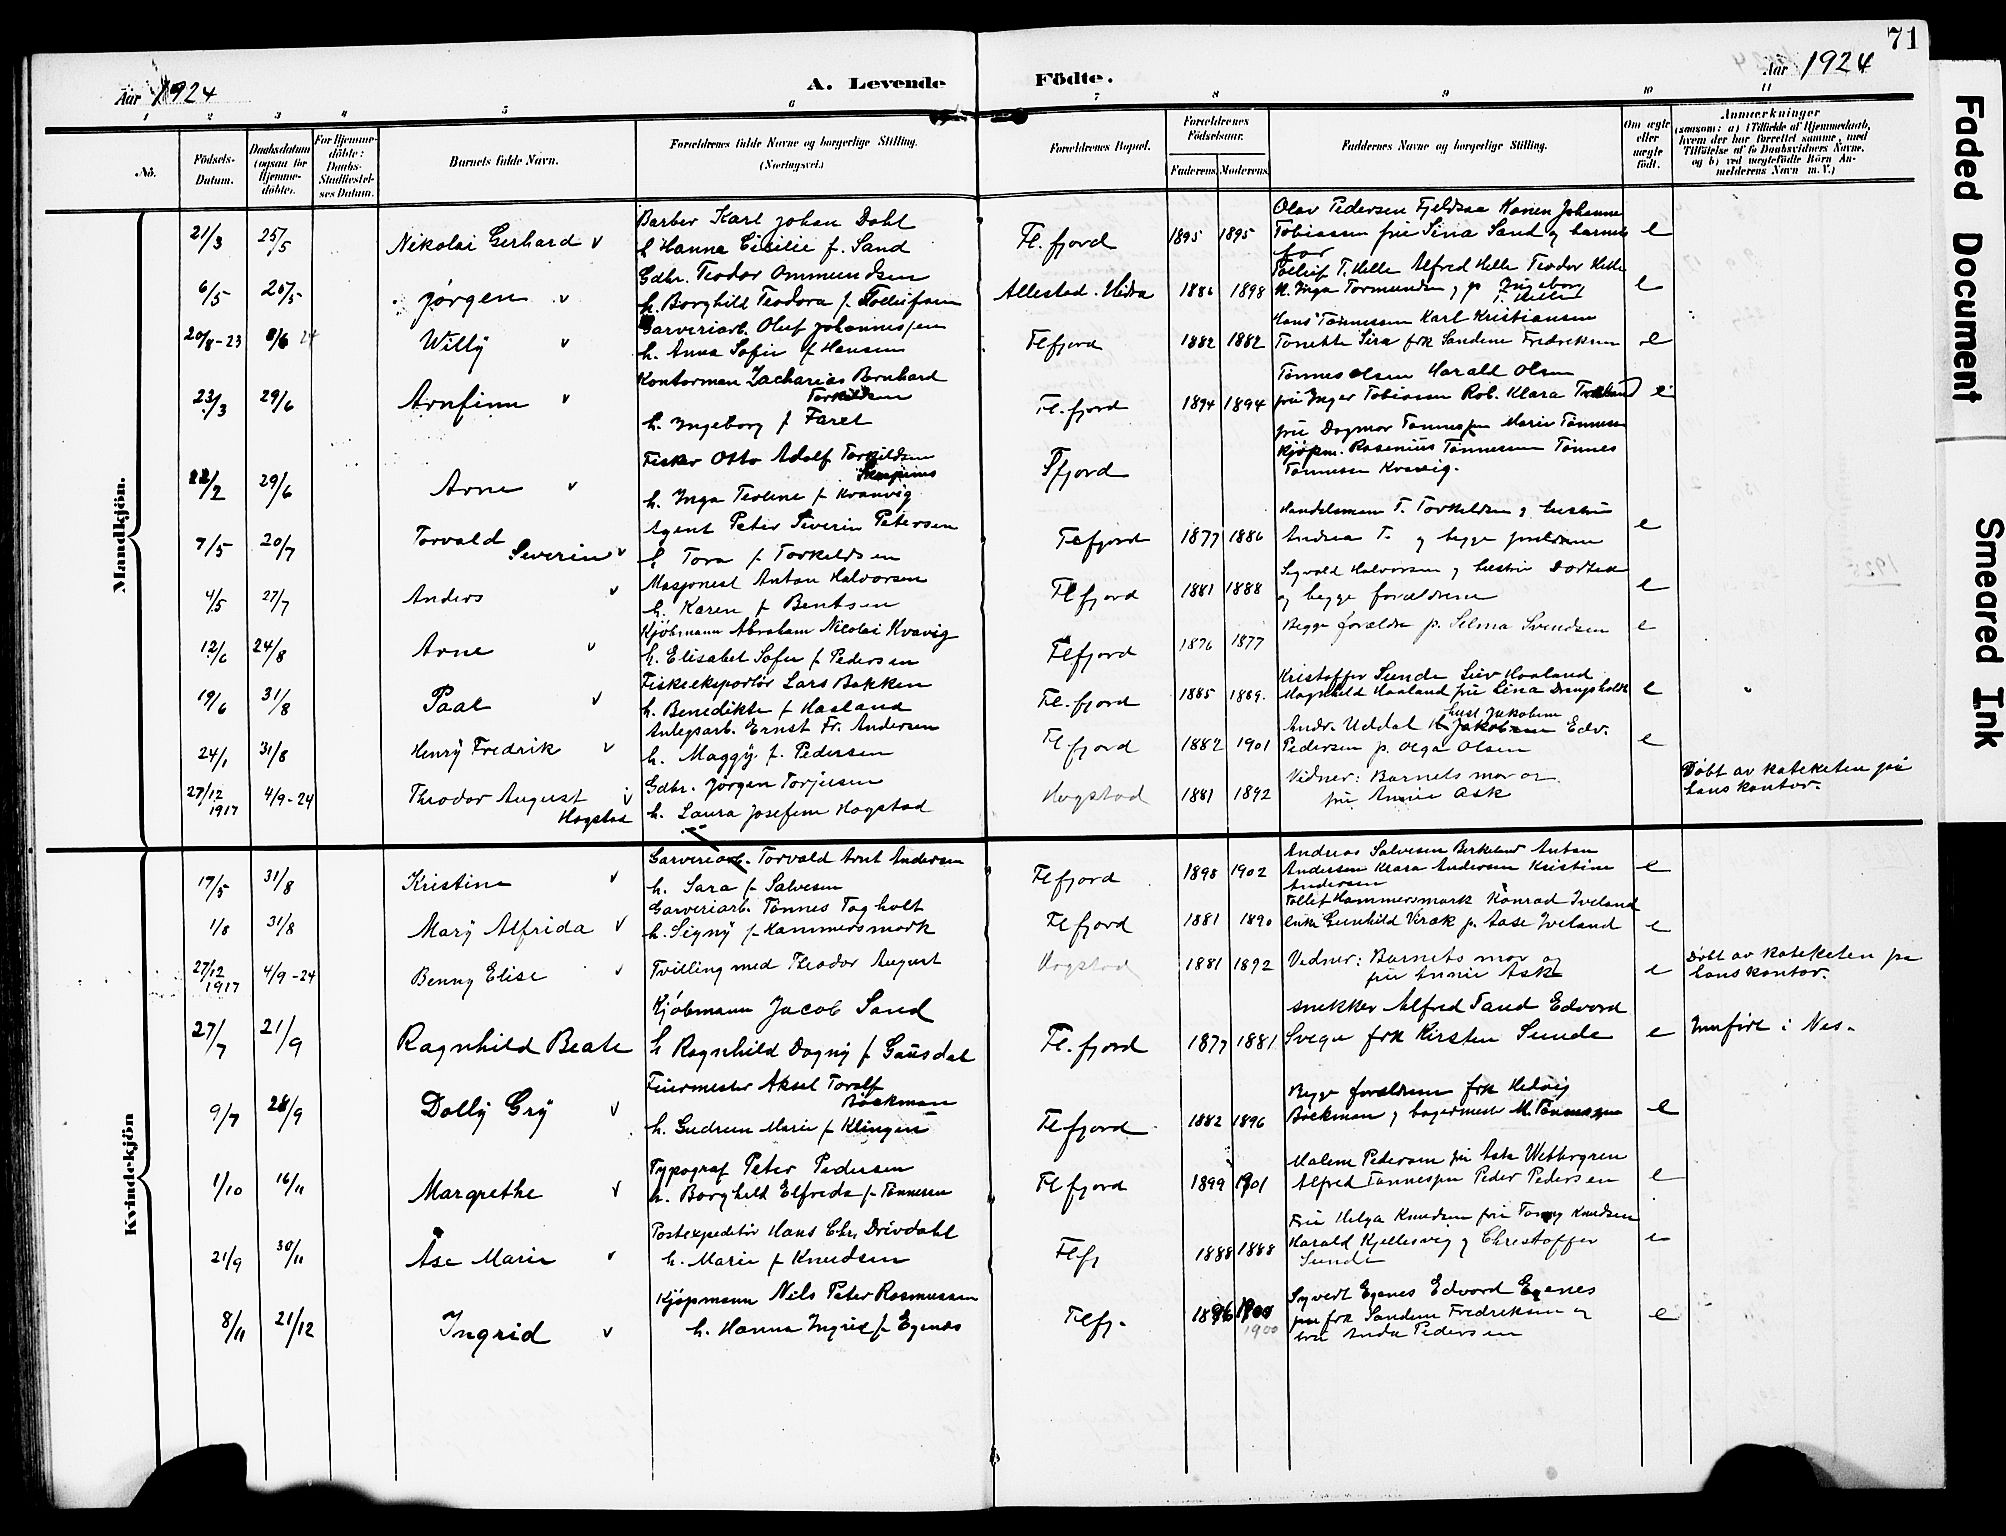 71
Aar 1924
A. Levende Födte.
Aar 1924
1 2 3 4 5 6 7 8 9 10 11
No.
Födsels-Datum.
Daabsdatum (ogsaa for Hjemmedöbte).
For Hjemmedöbte: Daabs-Stadfæstelses Datum.
Barnets fulde Navn.
Forældrenes fulde Navne og borgerlige Stilling. (Næringsvei.)
Forældrenes Bopæl.
Forældrenes Födselsaar.
Faderens. Moderens.
Faddernes Navne og borgerlige Stilling.
Om ægte eller uægte födt.
Anmærkninger
(saasom: a) i Tilfælde af Hjemmedaab, hvem der har forrettet samme, med Tilföielse af to Daabsvidners Navne, og b) ved uægtefödte Börn Anmelderens Navn m. V.)
Mandkjön.
21/3 25/5 Nikolai Gerhard v Barber Karl Johan Dahl
h Hanna Cecilie f. Sand Fl. fjord 1895 1895 Olav Pedersen Fjeldsaa Karen Johanne
Tobiassen fru Sina Sand og barnets
far e
6/5 25/5 Jörgen v Gdbr. Teodor Ommundsen
h. Borghild Teodora f. Tollefsen Allestad. Hidra 1886 1898 Tollef T. Helle Alfred Helle Teodor Helle
K. Inga Tormundsen og p Ingeborg
T. Helle e
20/8-23 8/6 24 Willy v Garveriarb. Oluf Johannessen
h. Anna Sofie f Hansen Flfjord 1882 1882 Hans Tønnessen Karl Kristiansen
Tonette Sira frk Sandene Fredriksen e
23/3 29/6 Arnfinn v Kontorman Zacharias Bernhard
Torkildsen
h. Ingeborg f Faret Fl. fjord 1894 1894 Tønnes Olsen Harald Olsen
fru Inger Tobiassen Rob. Klara e
22/2 29/6 Arne v Fisker Otto Adolf Torkildsen
h. Inga Teoline f Kvanvig Flfjord fru Dagmor Tønnessen Marie Tønnessen
Kjøpm. Rasenius Tønnessen Tønnes
Tønnessen Kvavig.
7/5 20/7 Torvald Severin v Agent Peter Severin Petersen
h Tora f Torkeldsen Flefjord 1877 1886 Handelsmann T. Torkildsen og hustru
Andrea T. og begge forældrene e
4/5 27/7 Anders v Maskinist Anton Halvorsen
h. Karen f Bentsen Flfjord 1881 1888 Sigvald Halvorsen og hustru Dortea
og begge forældrene e
12/6 24/8 Arne v Kjöbmann Abraham Nikolai Kvavig
h. Elisabet Sofie f Pedersen Flefjord 1876 1877 Begge forældre p. Selma Svendsen e
19/6 31/8 Paal v Fiskeeksportör Lars Bakken
h. Benedikte f Haaland Fl. fjord 1885 1889. Kristoffer Sunde Siev Haaland
Magnhild Haaland fru Lina Drangsholt e
24/1 31/8 Henry Fredrik v Anlegsarb. Ernst Fr. Andersen
h. Maggy f. Pedersen Fl. fjord 1882 1901 Andr. Uddal hust Jakobine Edv.
Pedersen p. Olga Olsen e
27/12 1917 4/9-24 Theodor August Hogstad v Gdbr. Jörgen Torjusen
h. Laura Josefine Hogstad Hogstad 1881 1892 Vidner: Barnets mor og
fru Annie Ask Döbt av kateketen på
hans kontor.
Kvindekjön
17/5 31/8 Kristine v Garveriarb. Torvald Arnt Andersen
h. Sara f Salvesen Flfjord 1898 1902 Andreas Salvesen Birkeland Anton
Andersen Klara Andersen Kristine
Andersen e
1/8 31/8 Mary Alfrida v Garveriarb. Tönnes Tagholt
h. Signy f. Hammersmark Flfjord 1881 1890 Tollef Hammersmark Konrad Iveland
enke Gunhild Virak p. Aase Iveland e
27/12 1917 4/9-24 Benny Elise v Tvilling med Theodor August Hogstad 1881 1892 Vidner: Barnets mor og
fru Annie Ask e Döbt av kateketen på
hans kontor.
27/7 21/9 Ragnhild Beate Kjöbmann Jacob Sand
h Ragnhild Dagny f Gausdal Fl. fjord 1877 1881 snekker Alfred Sand Edvard
Svege frk Kirsten Sunde e Innført i Nes.
9/7 28/9 Dolly Gry v Feiermester Aksel Toralf
Böckman
h. Gudrun Marie f Klingen Flefjord 1882 1896 Begge forældrene frk Hedvig
Böckman og bagermest M. Tønnessen e
1/10 16/11 Margrethe v Typograf Peter Pedersen
h. Borghild Elfreda f. Tønnessen Flfjord 1899 1901 Malene Pedersen fru Asta Wettergren
Alfred Tønnessen Peder Pedersen e
21/9 30/11 Åse Marie v Postexpeditör Hans Chr. Drivdahl
h. Marie f Knudsen Flfj 1888 1888 Fru Helga Knudsen fru Tonny Knudsen
Harald Kjellesvig og Christoffer
Sunde e
8/11 21/12 Ingrid v Kjöpmann Nils Peter Rasmussen
h. Hanna Ingrid f Egenæs Flfj. 1896 1900
1900 Syvert Egenes Edvard Egenes
frk Sandene Fredriksen og
fru Anda Pedersen e
Faded Document
Smeared Ink